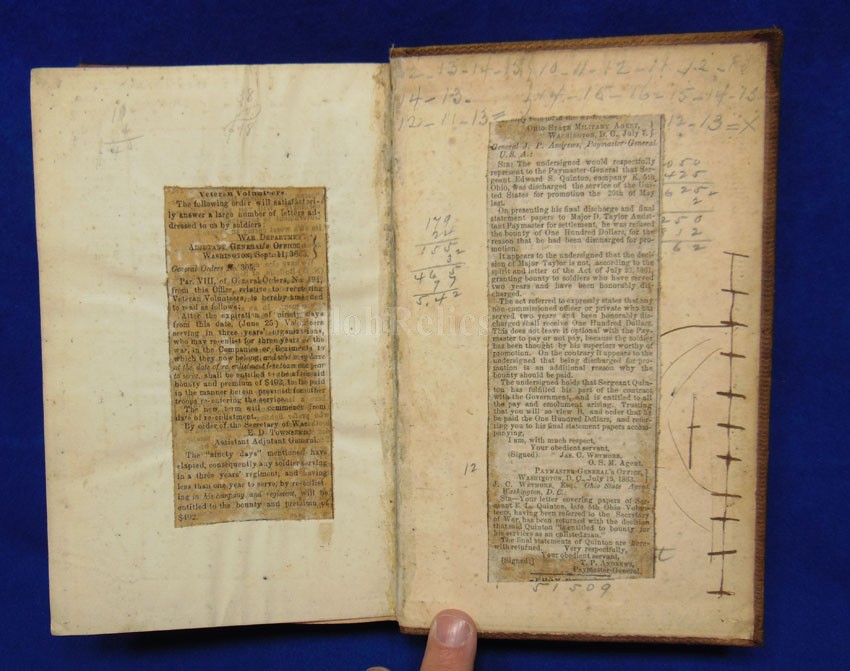 Veteran Volunteers
The following order will satisfactori-
ly answer a large number of letters ad-
dressed to us by soldiers:
WAR DEPARTMENT,
ADJUTANT GENERAL'S OFFICE,
WASHINGTON, Sept. 11, 1863.
General Orders No. 305.
PAR. VIII, of General Orders, No. 191,
from this Office, relative to recruiting
Veteran Volunteers, is hereby amended
to read as follows:
After the expiration of ninety days
from this date, (June 25) Volunteers
serving in three years' organizations,
who may re-enlist for three years or the
war, in the Companies or Regiments to
which they now belong, and who may have
at the date of re-enlistment less than one year
to serve, shall be entitled to the aforesaid
bounty and premium of $402, to be paid
in the manner herein provided for other
troops re-entering the service.
The new term will commence from
date of re-enlistment.
By order of the Secretary of War.
E. D. TOWNSEND,
Assistant Adjutant General.
The "ninety days" mentioned have
elapsed, consequently any soldier serving
in a three years' regiment, and having
less than one year to serve, by re-enlist-
ing in his company and regiment, will be
entitled to the bounty and premium of
$402.
OHIO STATE MILITARY AGENT,
WASHINGTON, D. C., July 7.
General J. P. Andrews, Paymaster-General
U. S. A.:
SIR: The undersigned would respectfully
represent to the Paymaster-General that Ser-
geant Edward S. Quinton, company E, 5th
Ohio, was discharged the service of the Uni-
ted States for promotion the 20th of May
last.
On presenting his final discharge and final
statement papers to Major D. Taylor Assist-
ant Paymaster for settlement, he was refused
the bounty of One Hundred Dollars, for the
reason that he had been discharged for pro-
motion.
It appears to the undersigned that the deci-
sion of Major Taylor is not, according to the
spirit and letter of the Act of July 22, 1861,
granting bounty to soldiers who have served
two years and have been honorably dis-
charged.
The act referred to expressly states that any
non-commissioned officer or private who has
served two years and been honorably dis-
charged shall receive One Hundred Dollars.
This does not leave it optional with the Pay-
master to pay or not pay, because the soldier
has been thought by his superiors worthy of
promotion. On the contrary it appears to the
undersigned that being discharged for pro-
motion is an additional reason why the
bounty should be paid.
The undersigned holds that Sergeant Quin-
ton has fulfilled his part of the contract
with the Government, and is entitled to all
the pay and emolument arising. Trusting
that you will so view it, and order that he
be paid the One Hundred Dollars, and refer-
ring you to his final statement papers accom-
panying,
I am, with much respect,
Your obedient servant,
(Signed) JAS. C. WETMORE,
O. S. M. Agent.
PAYMASTER-GENERAL'S OFFICE,
WASHINGTON, D. C., July 15, 1863.
J. C. Wetmore, Esq., Ohio State Agent,
Washington, D. C.
SIR—Your letter covering papers of Ser-
geant E. L. Quinton, late 5th Ohio Volun-
teers, having been referred to the Secretary
of War, has been returned with the decision
that said Quinton "is entitled to bounty for
his services as an enlisted man."
The final statements of Quinton are here-
with returned. Very respectfully,
Your obedient servant,
[Signed] T. P. ANDREWS,
PayMaster-General.
12
51509